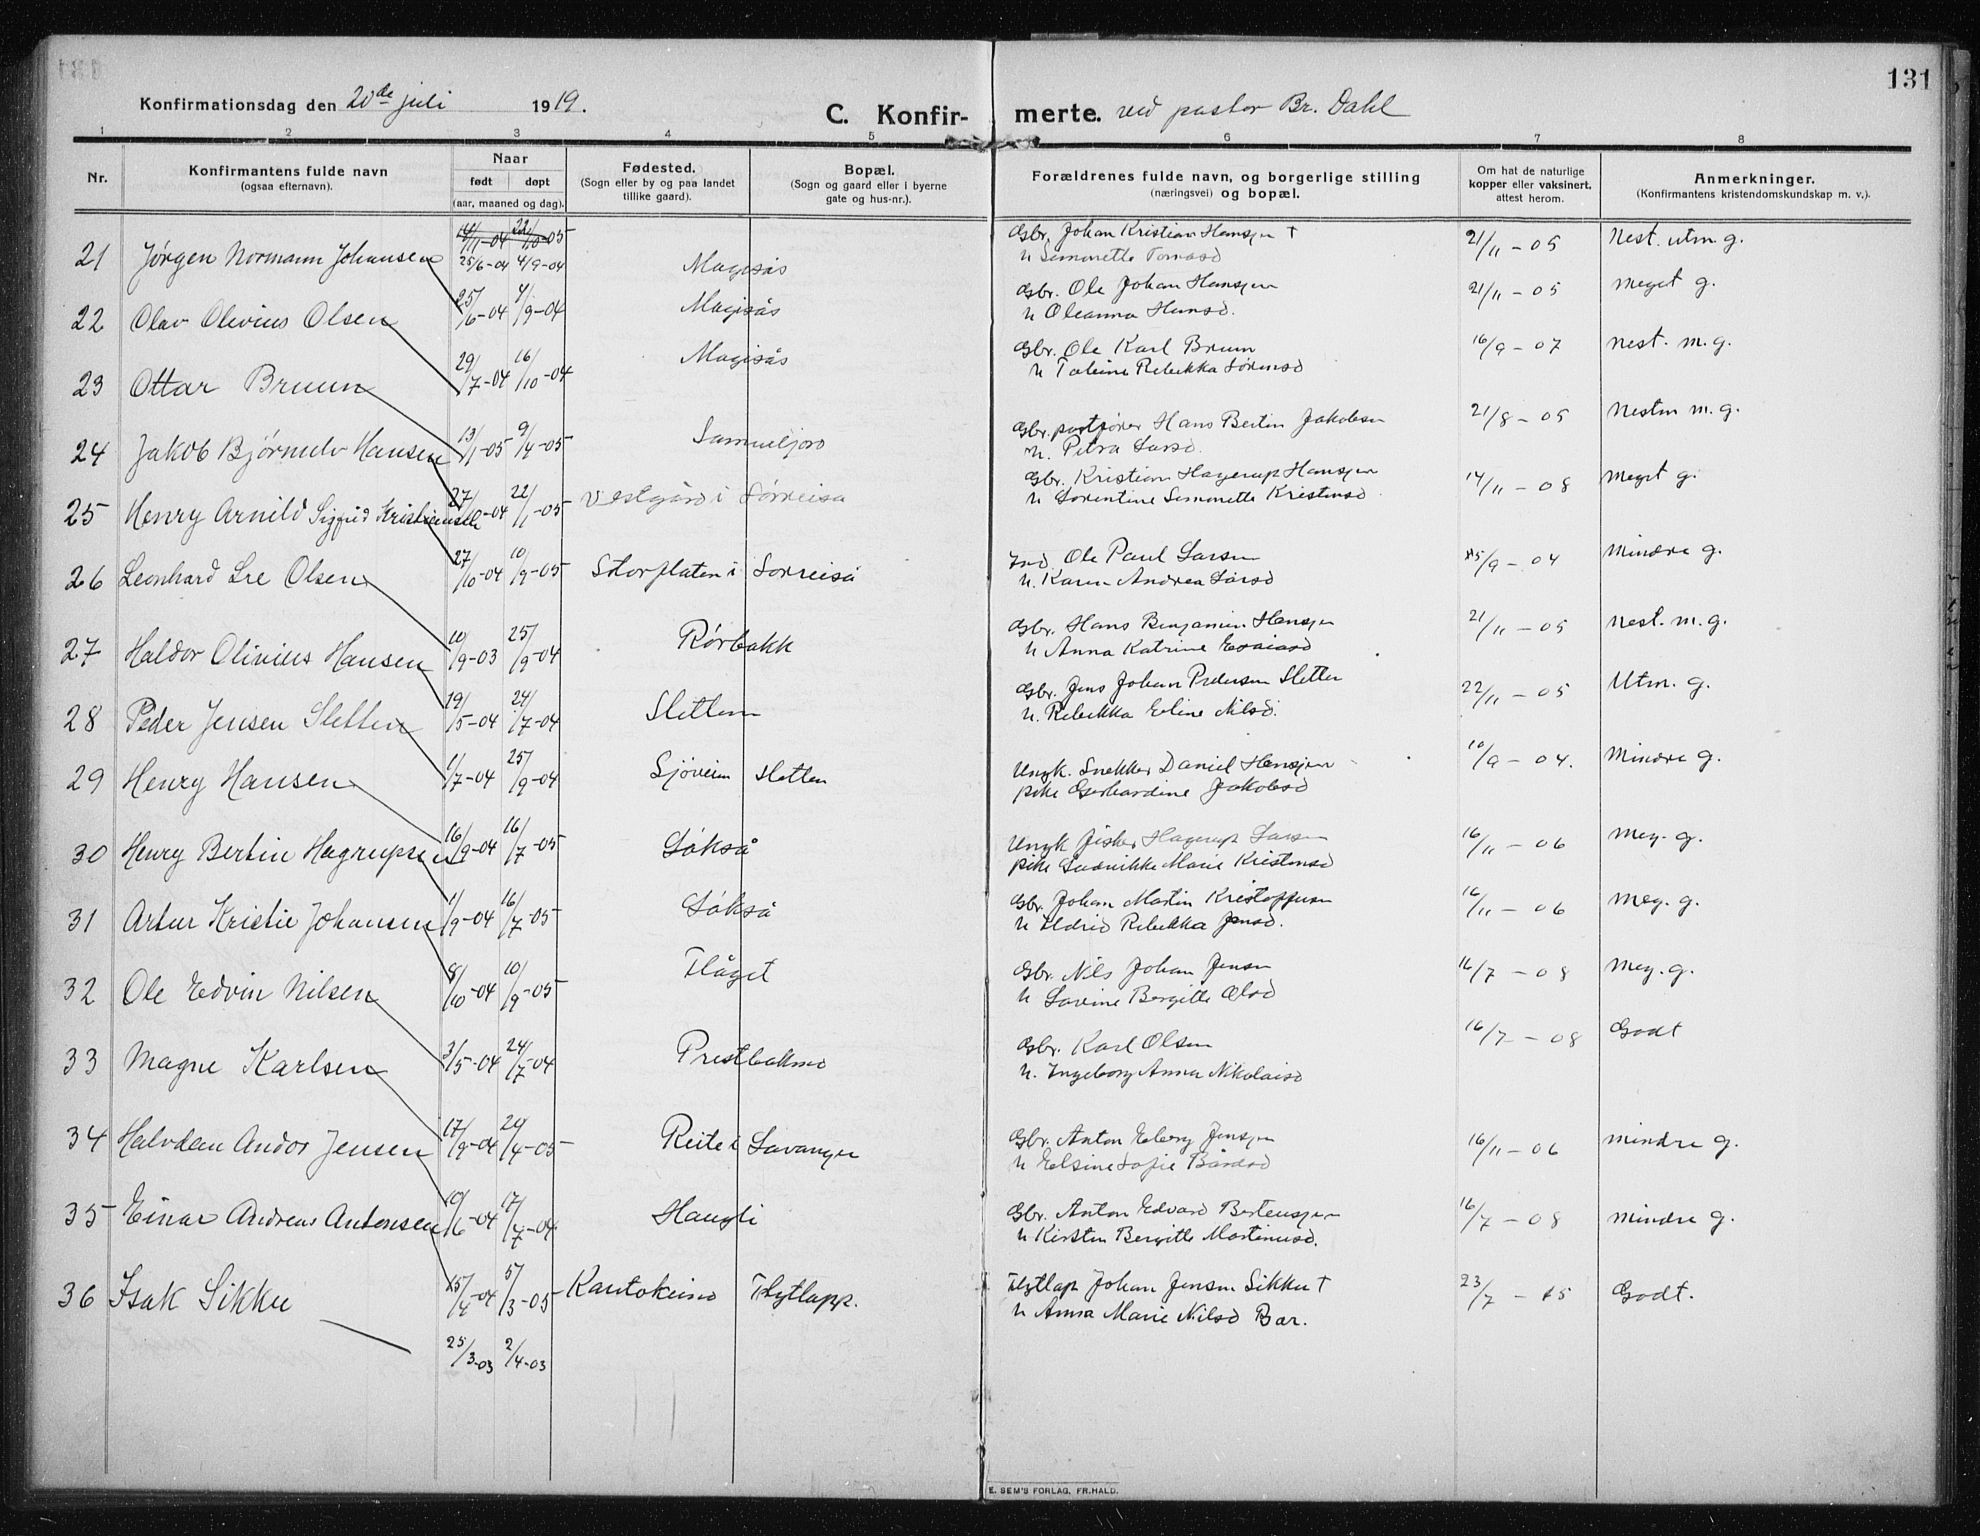 131
Konfirmationsdag den 20de juli 1919.
C. Konfir- merte. ved pastor Br. Dahl
1 2 3 4 5 6 7 8
Nr.
Konfirmantens fulde navn
(ogsaa efternavn).
Naar
født døpt
(aar, maaned og dag).
Fødested.
(Sogn eller by og paa landet
tillike gaard).
Bopæl.
(Sogn og gaard eller i byerne
gate og hus-nr.).
Forældrenes fulde navn, og borgerlige stilling
(næringsvei) og bopæl.
Om hat de naturlige
kopper eller vaksinert,
attest herom.
Anmerkninger.
(Konfirmantens kristendomskundskap m. v.).
21 Jørgen Normann Johansen 25/6-04 4/9-04 Magisås Gbr. Johan Kristian Hansen † 21/11-05 Nest. utm. g.
u Simonette Tomasd
22 Olav Olivius Olsen 25/6-04 4/9-04 Magisås Gbr. Ole Johan Hansen 21/11-05 Meget g.
u Oleanna Hansd.
23 Ottar Bruun 29/7-04 16/10-04 Magisås Gbr. Ole Karl Bruun 16/9-07 nest. m. g.
u Rebekka Sørensd
24 Jakob Hansen 13/1-05 9/4-05 Gbr. Hans Bertin Jakobsen 21/8-05 Nesten m. g.
u. Petra Larsd.
25 Henry Arnild Sigfrid Kristiansen 27/10-04 22/1-05 Vestgård i Sørreisa Gbr. Kristian Hagerup Hansen 14/11-08 Meget g.
u Lorentine Simonette Kristensd.
26 Leonhard Olsen 27/10-04 10/9-05 Storplaten i Sorreisa Ind. Ole Paul Larsen 25/9-04 Mindre g.
u. Karen Andrea Larsd
27 Haldor Olivius Hansen 10/9-03 25/9-04 Rørbakk Gbr. Hans Benjamin Hansen 21/11-05 Nest. m. g.
u Anna Katrine Esaiasd
28 Peder Jensen Sletten 19/5-04 24/7-04 Sletten Gbr. Jens Johan Pedersen Sletten 22/11-05 Utm. g.
u. Rebekka Eline Nilsd.
29 Henry Hansen 1/7-04 25/9-04 Sjøveien Sletten Ungk. Snekker Daniel Hansen 10/9-04. Mindre g.
pike Gerhardine Jakobsd
30 Henry Bertin Hagrupsen 16/9-04 16/7-05 Løkså Ungk fisker Hagerup Larsen 16/11-06 Meg. g.
pike Ludvikke Marie Kristensd
31 Artur Kristie Johansen 1/9-04 16/7-05 Løkså Gbr. Johan Martin Kristoffersen 16/11-06 Meg. g.
u Eldrid Rebekka Jensd.
32 Ole Edvin Nilsen 8/10-04 10/9-05 Flåget Gbr. Nils Johan Jensen 16/7-08 Meg. g.
u Lovine Bergitte Olsd
33 Magne Karlsen 3/5-04 24/7-04 Prestbakmo Gbr. Karl Olsen 16/7-08 Godt
u. Ingeborg Anna Nikolaisd
34 Halvdan Andor Jensen 17/9-04 24/4-05 Reite i Lavangen Gbr. Anton Eberg Jensen 16/11-06 mindre g.
u Elsine Sofie Bårdsd
35 Einar Andreas Antonsen 19/6-04 17/7-04 Haugli Gbr. Anton Edvard Bertensen 16/7-08 mindre g.
u Kirsten Bergitte Martinusd.
36 Isak Sikku 15/4-04 5/3-05 Kautokeino Flytlapp. Flytlap Johan Jensen Sikku † 23/7-15 Godt.
u Anna Marie Nilsd Bær.
25/3-03 2/4-03
E. SEM'S FORLAG, FR.HALD.